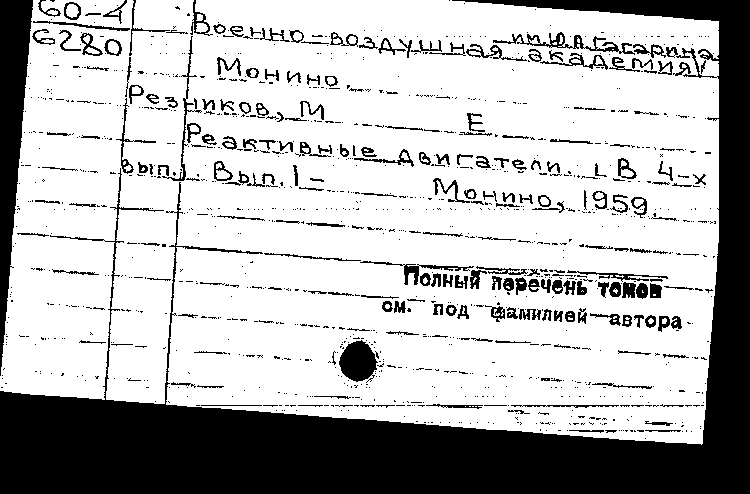 60-4
6280
Военно-воздушная академия
им. Ю.А. Гагарина
Монино.
Резников, М Е
Реактивные двигатели. [В 4-х
вып.]. Вып. 1 -
Монино, 1959.
Полный перечень томов
см. под фамилией автора